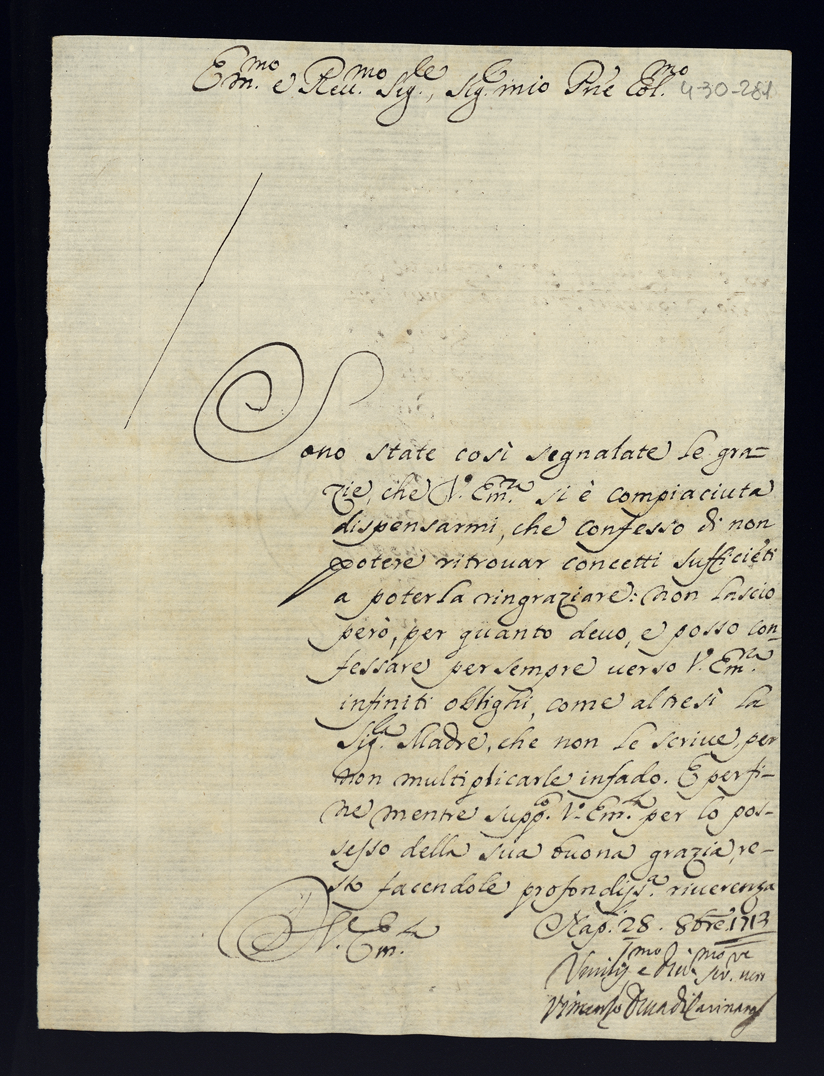 Em.mo e Reu.mo Sig.re, Sig.r mio Pne Col.mo 4-30-281
Sono state così segnalate le gra=
zie, che V.a Em.za si è compiaciuta
dispensarmi, che confesso di non
potere ritrouar concetti sufficieti
a poterla ringraziare: non lascio
però, per quanto deuo, e posso con=
fessare per sempre uerso V.a Em.za
infiniti oblighi, come altresì la
Sig.ra Madre, che non le scriue, per
non multiplicarle infado. E per fi=
ne mentre supp.co V.a Em.za per lo pos=
sesso della sua buona grazia, re=
sto facendole profondiss.a riuerenza
Nap.i 28. 8bre. 1713
Di V.a Em.za
Vmilis.mo e Diu.mo Ser.re uero
Vincenzo